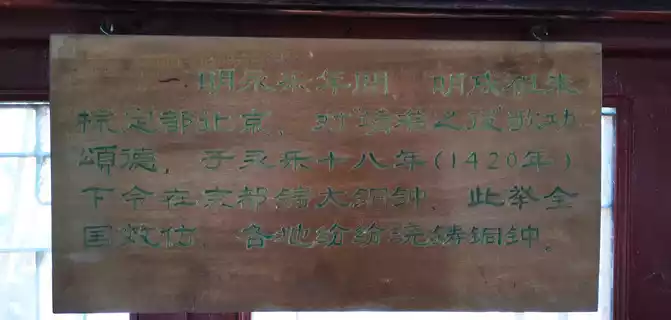 一.明永乐年间，明成祖朱
棣定都北京，对靖难之役歌功
颂德，于永乐十八年(1420年)
下令在京都铸大铜钟，此举全
国效仿，各地纷纷浇铸铜钟。